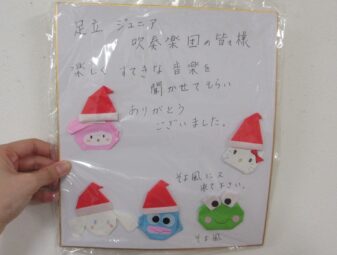 足立 ジュニア
吹奏楽団の皆様
楽しく すてきな 音楽を
聞かせてもらい
ありがとう
ございました。
そよ風に又
来て下さい。
そよ風